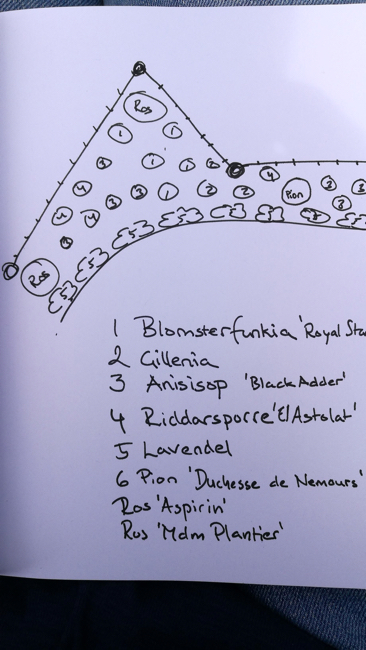 Ros
1
1
1
1
2
4
3
4
3
1
2
2
Pion
2
3
3
4
4
Ros
5
5
5
5
5
5
5
1 Blomsterfunkia 'Royal Sta
2 Gillenia
3 Anisisop 'Black Adder'
4 Riddarsporre 'El Astolat'
5 Lavendel
6 Pion 'Duchesse de Nemours'
Ros 'Aspirin'
Ros 'Mdm Plantier'